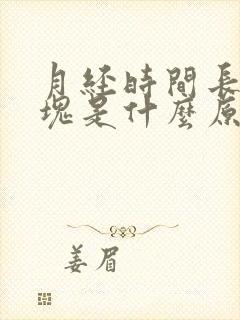 月经時間長
塊是什麼原
姜眉